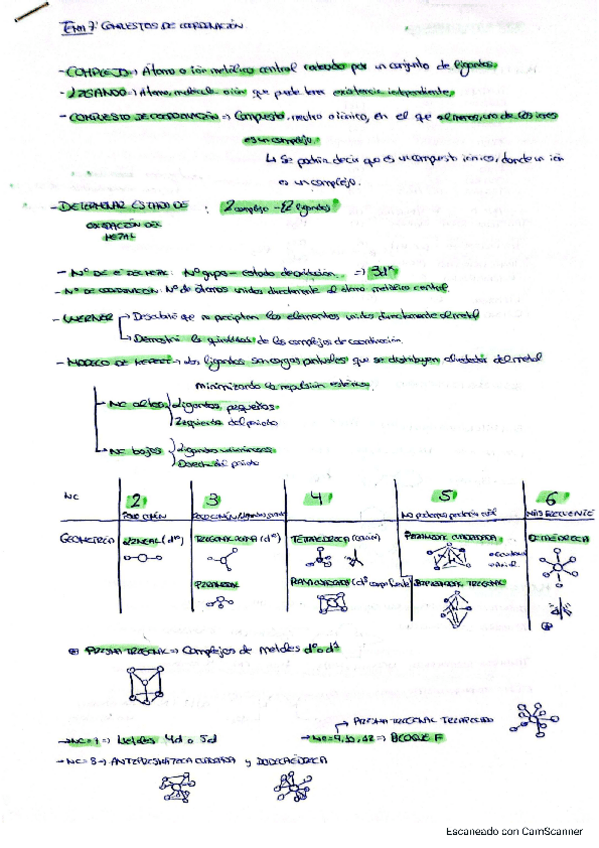 TEMA 7: COMPUESTOS DE COORDINACIÓN
-COMPLEJO→ Átomo o ión metálico central rodeado por un conjunto de ligandos.
-LIGANDO→ Átomo, molécula o ión que puede tener existencia independiente.
-COMPUESTO DE COORDINACIÓN→ Compuesto, neutro o iónico, en el que al menos uno de los iones
es un complejo.
↳ Se podría decir que es un compuesto iónico, donde un ión
es un complejo.
-DETERMINAR ESTADO DE : Z complejo - ΣZ ligandos
OXIDACIÓN DEL
METAL
- Nº DE e⁻ DEL METAL: Nº grupo - estado de oxidación => 3dⁿ
- Nº DE COORDINACIÓN: Nº de átomos unidos directamente al átomo metálico central.
- WERNER → Descubrió que no precipitan los elementos unidos directamente al metal
↳ Demostró la quiralidad de los complejos de coordinación.
- MODELO DE KEPERT→ los ligandos son cargas puntuales que se distribuyen alrededor del metal
minimizando la repulsión estérica.
NC altos ligandos pequeños
Izquierda del periodo
NC bajos ligandos voluminosos
Derecha del periodo
NC 2 3 4 5 6
POCO COMÚN POCO COMÚN MÁS FRECUENTE
GEOMETRÍA LINEAL (d¹⁰) TRIGONAL PLANA (d¹⁰) TETRAÉDRICA (común) PIRÁMIDE CUADRADA OCTAÉDRICA
PIRAMIDAL PLANO CUADRADA (d⁸ campo fuerte) BIPIRÁMIDE TRIGONAL
PRISMA TRIGONAL→ Complejos de metales d⁰ o d¹
→ PRISMA TRIGONAL TRICAPEADO
→NC=7→ Metales 4d o 5d →NC=9,10,12→ BLOQUE F
-NC=8→ ANTIPRISMÁTICA CUADRADA y DODECAÉDRICA
Escaneado con CamScanner